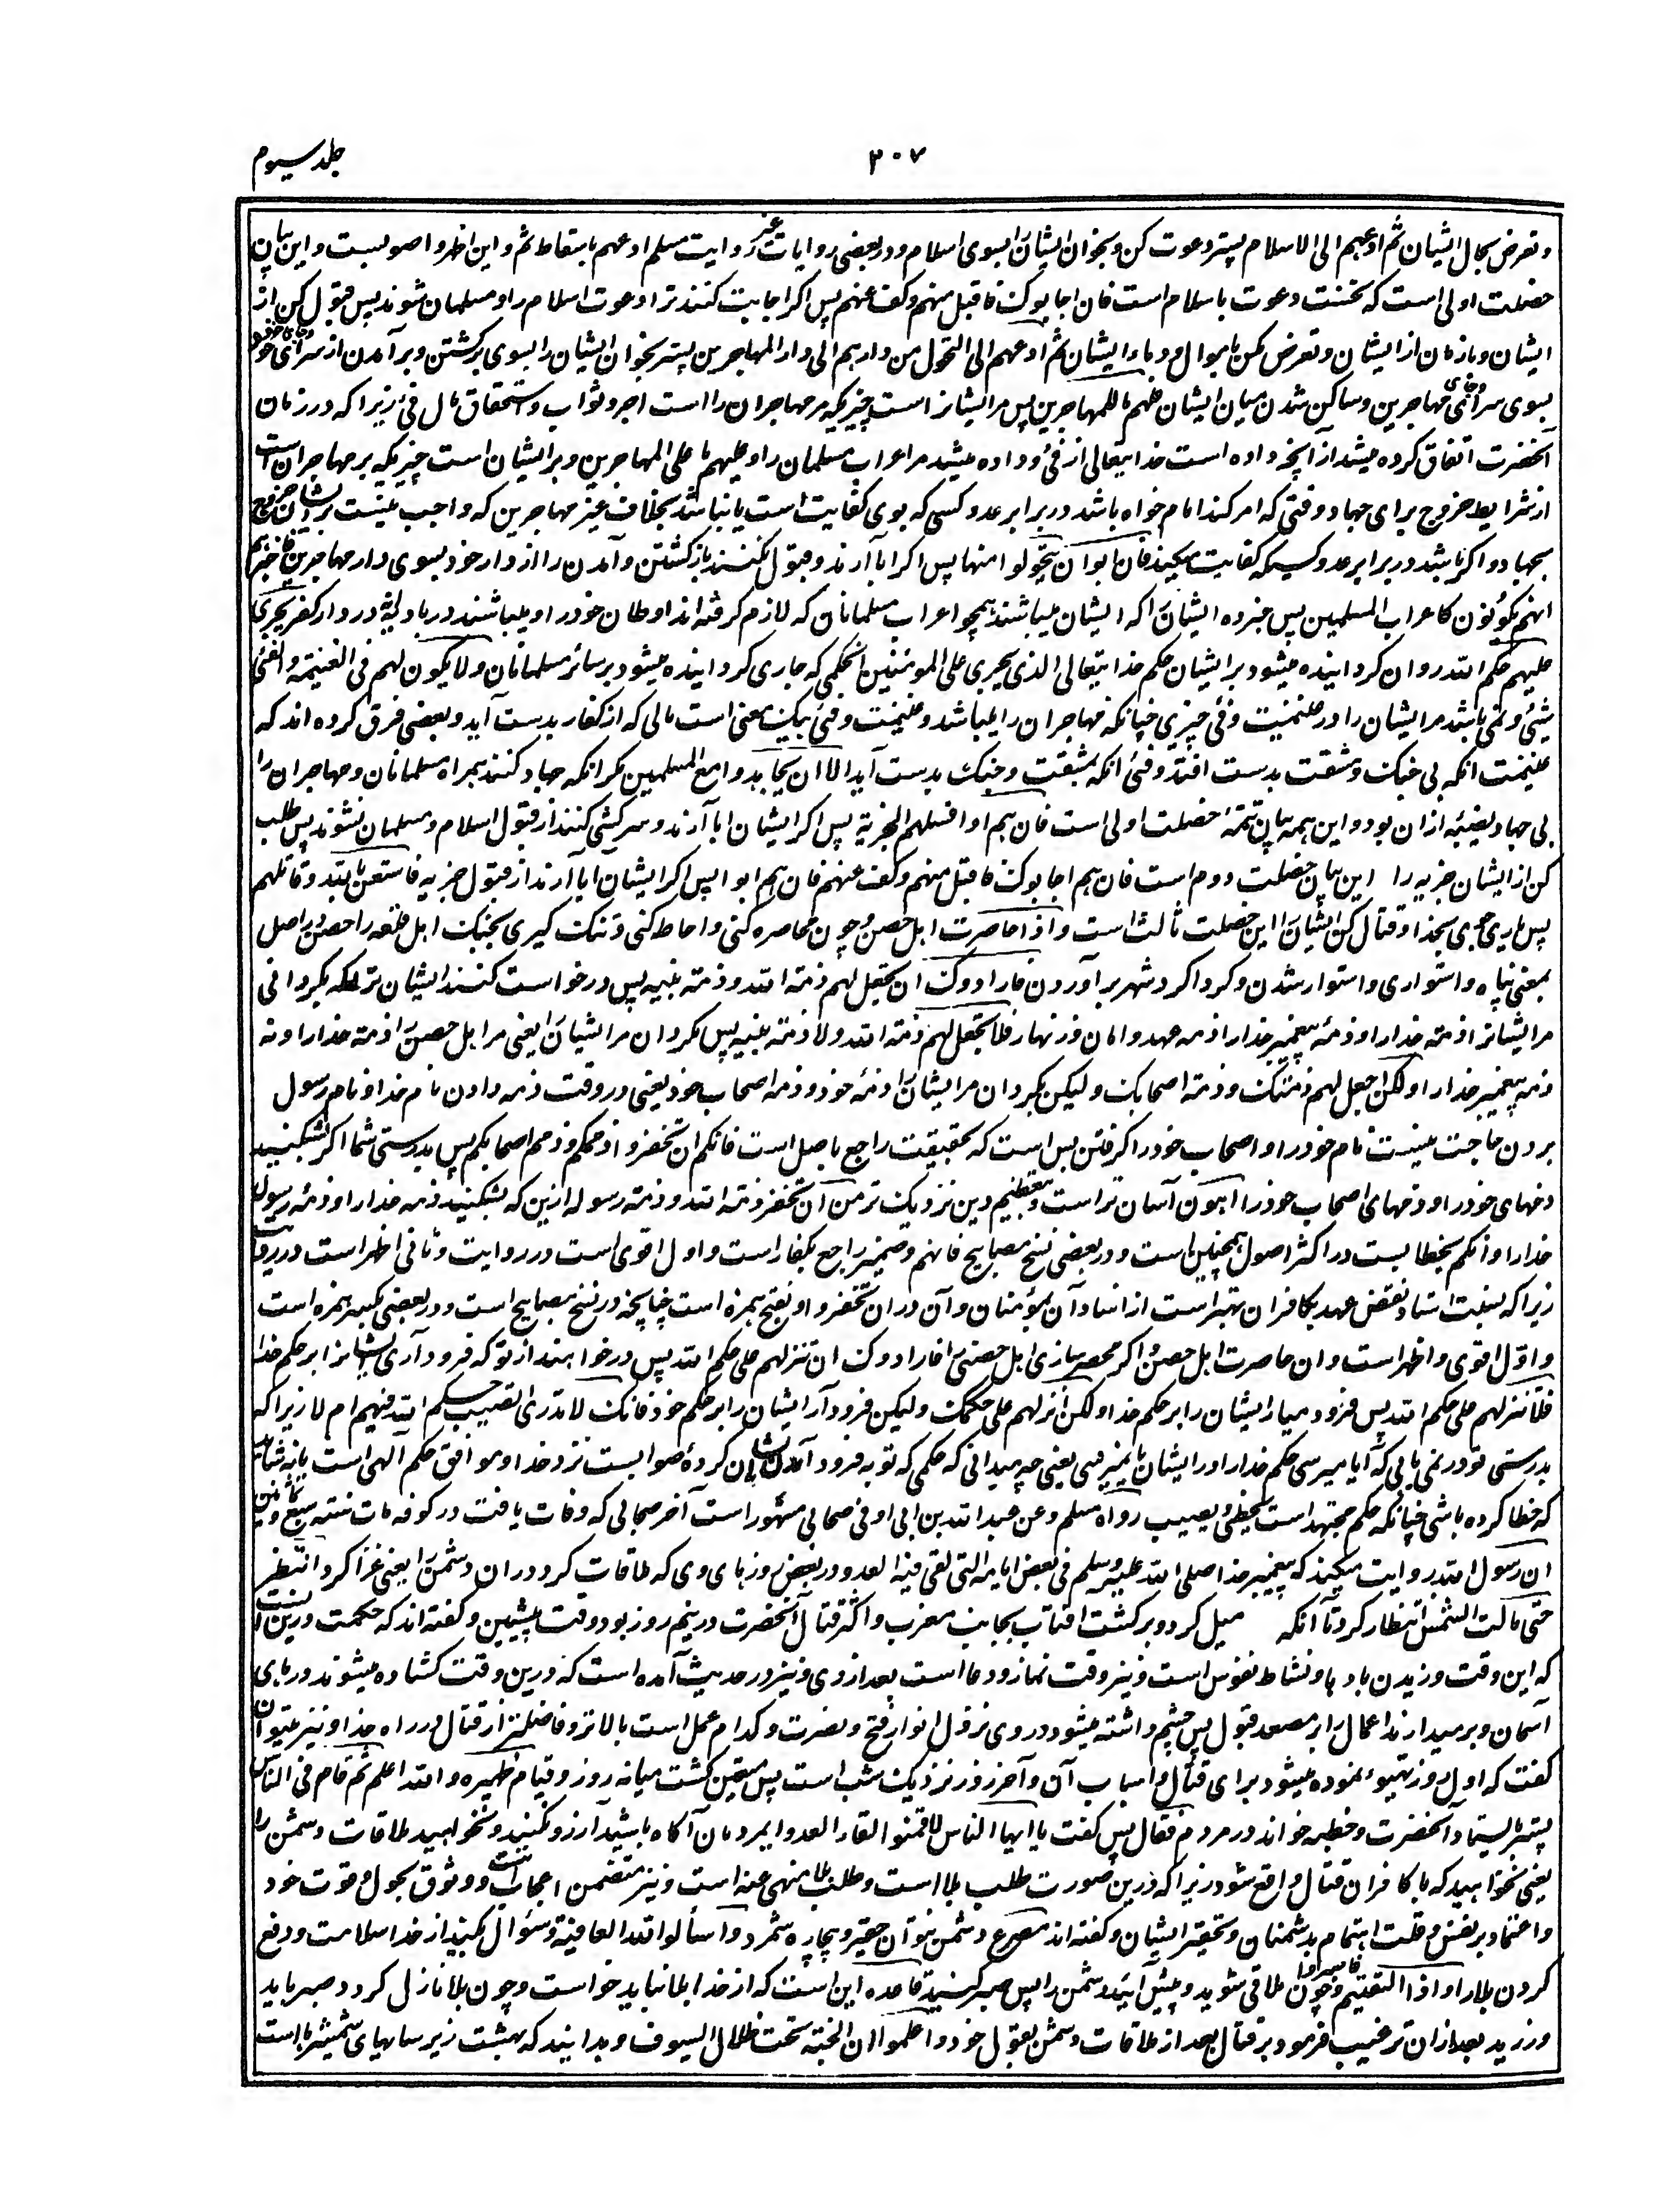 جلد سیوم
۳۰۷
و تعرض بحال ایشان ثم ادعهم الی الاسلام پستر دعوت کن و بخوان ایشان را بسوی اسلام و در بعضی روایات غیر روایت مسلم ادعهم باسقاط ثم و این اظهر و اصوبست و این بیان
خصلت اولی است که نخست دعوت باسلام است فان اجابوک فاقبل منهم و کف عنهم پس اگر اجابت کنند ترا دعوت اسلام را و مسلمان شوند پس قبول کن از
ایشان و باز مان از ایشان و تعرض مکن باموال و دماء ایشان ثم ادعهم الی التحول من دارهم الی دار المهاجرین پستر بخوان ایشان را بسوی برگشتن و برآمدن از سرای خود
بسوی سرای مهاجرین و ساکن شدن میان ایشان فلهم ما للمهاجرین پس مر ایشانراست چیزیکه مر مهاجران را است اجر و ثواب و استحقاق مال فئ زیرا که در زمان
آنحضرت انفاق کرده میشد از آنچه داده است خدایتعالی از فئ و داده نمیشد مر اعراب مسلمان را و علیهم ما علی المهاجرین و بر ایشان است چیزیکه بر مهاجران است
از شرایط خروج برای جهاد وقتی که امر کند امام خواه باشد در برابر عدو کسی که بوی کفایت است یا نباشد بخلاف غیر مهاجرین که واجب نیست بر ایشان خروج
بجهاد و اگر باشد در برابر عدو کسیکه کفایت میکند فان ابوا ان یتحولوا منها پس اگر ابا آرند و قبول نکنند بازگشتن و آمدن را از دار خود بسوی دار مهاجرین فاخبرهم
انهم یکونون کاعراب المسلمین پس خبر ده ایشان را که ایشان میباشند همچو اعراب مسلمانان که لازم گرفته اند اوطان خود را و میباشند در بادیه نه در دار کفر یجری
علیهم حکم الله روان گردانیده میشود بر ایشان حکم خدایتعالی الذی یجری علی المؤمنین آن حکمی که جاری گردانیده میشود بر سائر مسلمانان و لا یکون لهم فی الغنیمة و الفئ
شیء و نمی باشد مر ایشان را در غنیمت و فئ چیزی چنانکه مهاجران را میباشد و غنیمت و فئ بیک معنی است مالی که از کفار بدست آید و بعضی فرق کرده اند که
غنیمت آنکه بی جنگ و مشقت بدست افتد و فئ آنکه بمشقت و جنگ بدست آید الا ان یجاهدوا مع المسلمین مگر آنکه جهاد کنند همراه مسلمانان و مهاجران را
بی جهاد نصیبه ازان بود و این همه بیان تتمه خصلت اولی است فان هم ابوا فسلهم الجزیة پس اگر ایشان ابا آرند و سرکشی کنند از قبول اسلام و مسلمان نشوند پس طلب
کن از ایشان جزیه را این بیان خصلت دوم است فان هم اجابوک فاقبل منهم و کف عنهم فان هم ابوا پس اگر ایشان ابا آرند از قبول جزیه فاستعن بالله و قاتلهم
پس یاری جوی بخدا و قتال کن ایشان را این خصلت ثالث است و اذا حاصرت اهل حصن و چون محاصره کنی و احاطه کنی و تنگ گیری بجنگ اهل قلعه را حصن در اصل
بمعنی پناه و استواری و استوار شدن و گرداگرد شهر برآوردن فارادوک ان تجعل لهم ذمة الله و ذمة نبیه پس درخواست کنند ایشان ترا که بگردانی
مر ایشانرا ذمه خدا را و ذمه پیغمبر خدا را ذمه عهد و امان و زنهار فلا تجعل لهم ذمة الله و لا ذمة نبیه پس مگردان مر ایشان را یعنی مر اهل حصن را ذمه خدا را و نه
ذمه پیغمبر خدا را و لکن اجعل لهم ذمتک و ذمة اصحابک و لیکن بگردان مر ایشان را ذمه خود و ذمه اصحاب خود یعنی در وقت ذمه دادن نام خدا و نام رسول
بردن حاجت نیست نام خود را و اصحاب خود را گرفتن بس است که بحقیقت راجع باصل است فانکم ان تخفروا ذممکم و ذمم اصحابکم پس بدرستی شما اگر بشکنید
ذمهای خود را و ذمهای اصحاب خود را اهون آسان تر است و بتعظیم دین نزدیک تر من ان تخفروا ذمة الله و ذمة رسوله ازین که بشکنید ذمه خدا را و ذمه رسول
خدا را و انکم بخطابست در اکثر اصول همچنین است و در بعضی نسخ مصابیح فانهم و ضمیر راجع بکفار است و اول اقوی است در روایت و ثانی اظهر است در درایت
زیرا که نسبت اسناد نقض عهد بکافران بهتر است از اسناد آن بمؤمنان و آن در ان تخفروا و بفتح همزه است چنانچه در نسخ مصابیح است و در بعضی بکسر همزه است
و اول اقوی و اظهر است و ان حاصرت اهل حصن و اگر محصر سازی اهل حصنی را فارادوک ان تنزلهم علی حکم الله پس درخواهند از تو که فرود آری ایشانرا بر حکم خدا
فلا تنزلهم علی حکم الله پس فرود میار ایشان را بر حکم خدا و لکن انزلهم علی حکمک و لیکن فرود آر ایشان را بر حکم خود فانک لا تدری اتصیب حکم الله فیهم ام لا زیرا که
بدرستی تو در نمی یابی که آیا میرسی حکم خدا را در ایشان یا نمیرسی یعنی چه میدانی که حکمی که تو بفرود آمدن ایشان کرده صوابست نزد خدا و موافق حکم الهی است یا نه شاید
که خطا کرده باشی چنانکه حکم مجتهد است یخطی و یصیب رواه مسلم و عن عبد الله بن ابی اوفی صحابی مشهور است آخر صحابی که وفات یافت در کوفه مات سنة سبع و ثمانین
ان رسول الله روایت میکند که پیغمبر خدا صلی الله علیه و سلم فی بعض ایامه التی لقی فیها العدو در بعض روزهای وی که ملاقات کرد دران دشمن را یعنی غزا کرد انتظر
حتی مالت الشمس انتظار کرد تا آنکه میل کرد و برگشت آفتاب بجانب مغرب و اکثر قتال آنحضرت در نیم روز بود وقت پیشین و گفته اند که حکمت درین آنست
که این وقت وزیدن بادها و نشاط نفوس است و نیز وقت نماز و دعا است بعد از وی و نیز در حدیث آمده است که درین وقت گشاده میشوند درهای
آسمان و برمیدارند اعمال را بر مصعد قبول پس چشم داشته میشود در وی نزول انوار فتح و نصرت و کدام عمل است بالاتر و فاضلتر از قتال در راه خدا و نیز میتوان
گفت که اول روز تهیؤ نموده میشود برای قتال و اسباب آن و آخر روز نزدیک شب است پس متعین گشت میانه روز و قیام ظهیره و الله اعلم ثم قام فی الناس
پستر بایستاد آنحضرت و خطبه خواند در مردم فقال پس گفت یا ایها الناس لا تتمنوا لقاء العدو ای مردمان آگاه باشید آرزو نکنید و نخواهید ملاقات دشمن را
یعنی نخواهید که با کافران قتال واقع شود زیرا که درین صورت طلب بلا است و طلب بلا منهی عنه است و نیز متضمن اعجاب است و وثوق بحول و قوت خود
و اعتماد بر نفس و قلت اهتمام بدشمنان و تحقیر ایشان و گفته اند مصرع دشمن نتوان حقیر و بیچاره شمرد و اسألوا الله العافیة و سؤال بکنید از خدا سلامت و دفع
کردن بلا را و اذا لقیتم فاصبروا و چون ملاقی شوید و پیش آئید دشمن را پس صبر کنید قاعده این است که از خدا بلا نباید خواست و چون بلا نازل گردد صبر باید
ورزید بعد ازان ترغیب فرمود بر قتال بعد از ملاقات دشمن بقول خود و اعلموا ان الجنة تحت ظلال السیوف و بدانید که بهشت زیر سایهای شمشیرها است